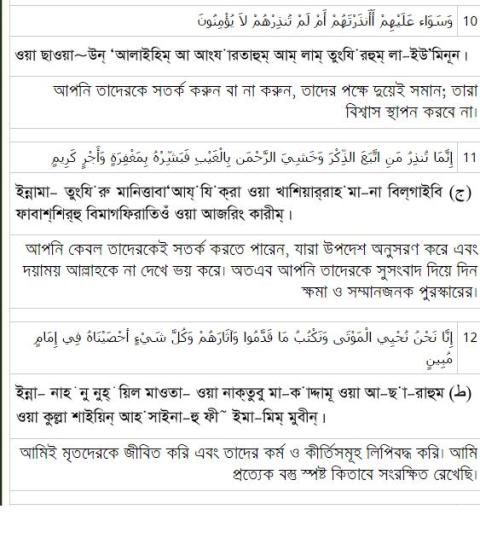 10 وَسَوَاء عَلَيْهِمْ أَأَنذَرْتَهُمْ أَمْ لَمْ تُنذِرْهُمْ لاَ يُؤْمِنُونَ
ওয়া ছাওয়া~উন্ ‘আলাইহিম্ আ আংয ́ারতাহুম্ আম্ লাম্ তুংযি ́রহুম্ লা–ইউ’মিনূন।
আপনি তাদেরকে সতর্ক করুন বা না করুন, তাদের পক্ষে দুয়েই সমান; তারা
বিশ্বাস স্থাপন করবে না।
11 إِنَّمَا تُنذِرُ مَنِ اتَّبَعَ الذِّكْرَ وَخَشِيَ الرَّحْمَن بِالْغَيْبِ فَبَشِّرْهُ بِمَغْفِرَةٍ وَأَجْرٍ كَرِيمٍ
ইন্নামা– তুংযি ́রু মানিত্তাবা‘আয্ যি ́ক্রা ওয়া খাশিয়াররাহ ́মা–না বিল্গাইবি (ج)
ফাবাশ্শিরহু বিমাগফিরাতিওঁ ওয়া আজরিং কারীম্।
আপনি কেবল তাদেরকেই সতর্ক করতে পারেন, যারা উপদেশ অনুসরণ করে এবং
দয়াময় আল্লাহকে না দেখে ভয় করে। অতএব আপনি তাদেরকে সুসংবাদ দিয়ে দিন
ক্ষমা ও সম্মানজনক পুরস্কারের।
12 إِنَّا نَحْنُ نُحْيِي الْمَوْتَى وَنَكْتُبُ مَا قَدَّمُوا وَآثَارَهُمْ وَكُلَّ شَيْءٍ أحْصَيْنَاهُ فِي إِمَامٍ
مُبِينٍ
ইন্না– নাহ ́নু নুহ্ ́য়িল মাওতা– ওয়া নাক্তুবু মা–ক ́াদ্দামূ ওয়া আ–ছ ́া–রাহুম (ط)
ওয়া কুল্লা শাইয়িন্ আহ ́সাইনা–হু ফী~ ইমা–মিম্ মুবীন্।
আমিই মৃতদেরকে জীবিত করি এবং তাদের কর্ম ও কীর্তিসমূহ লিপিবদ্ধ করি। আমি
প্রত্যেক বস্তু স্পষ্ট কিতাবে সংরক্ষিত রেখেছি।